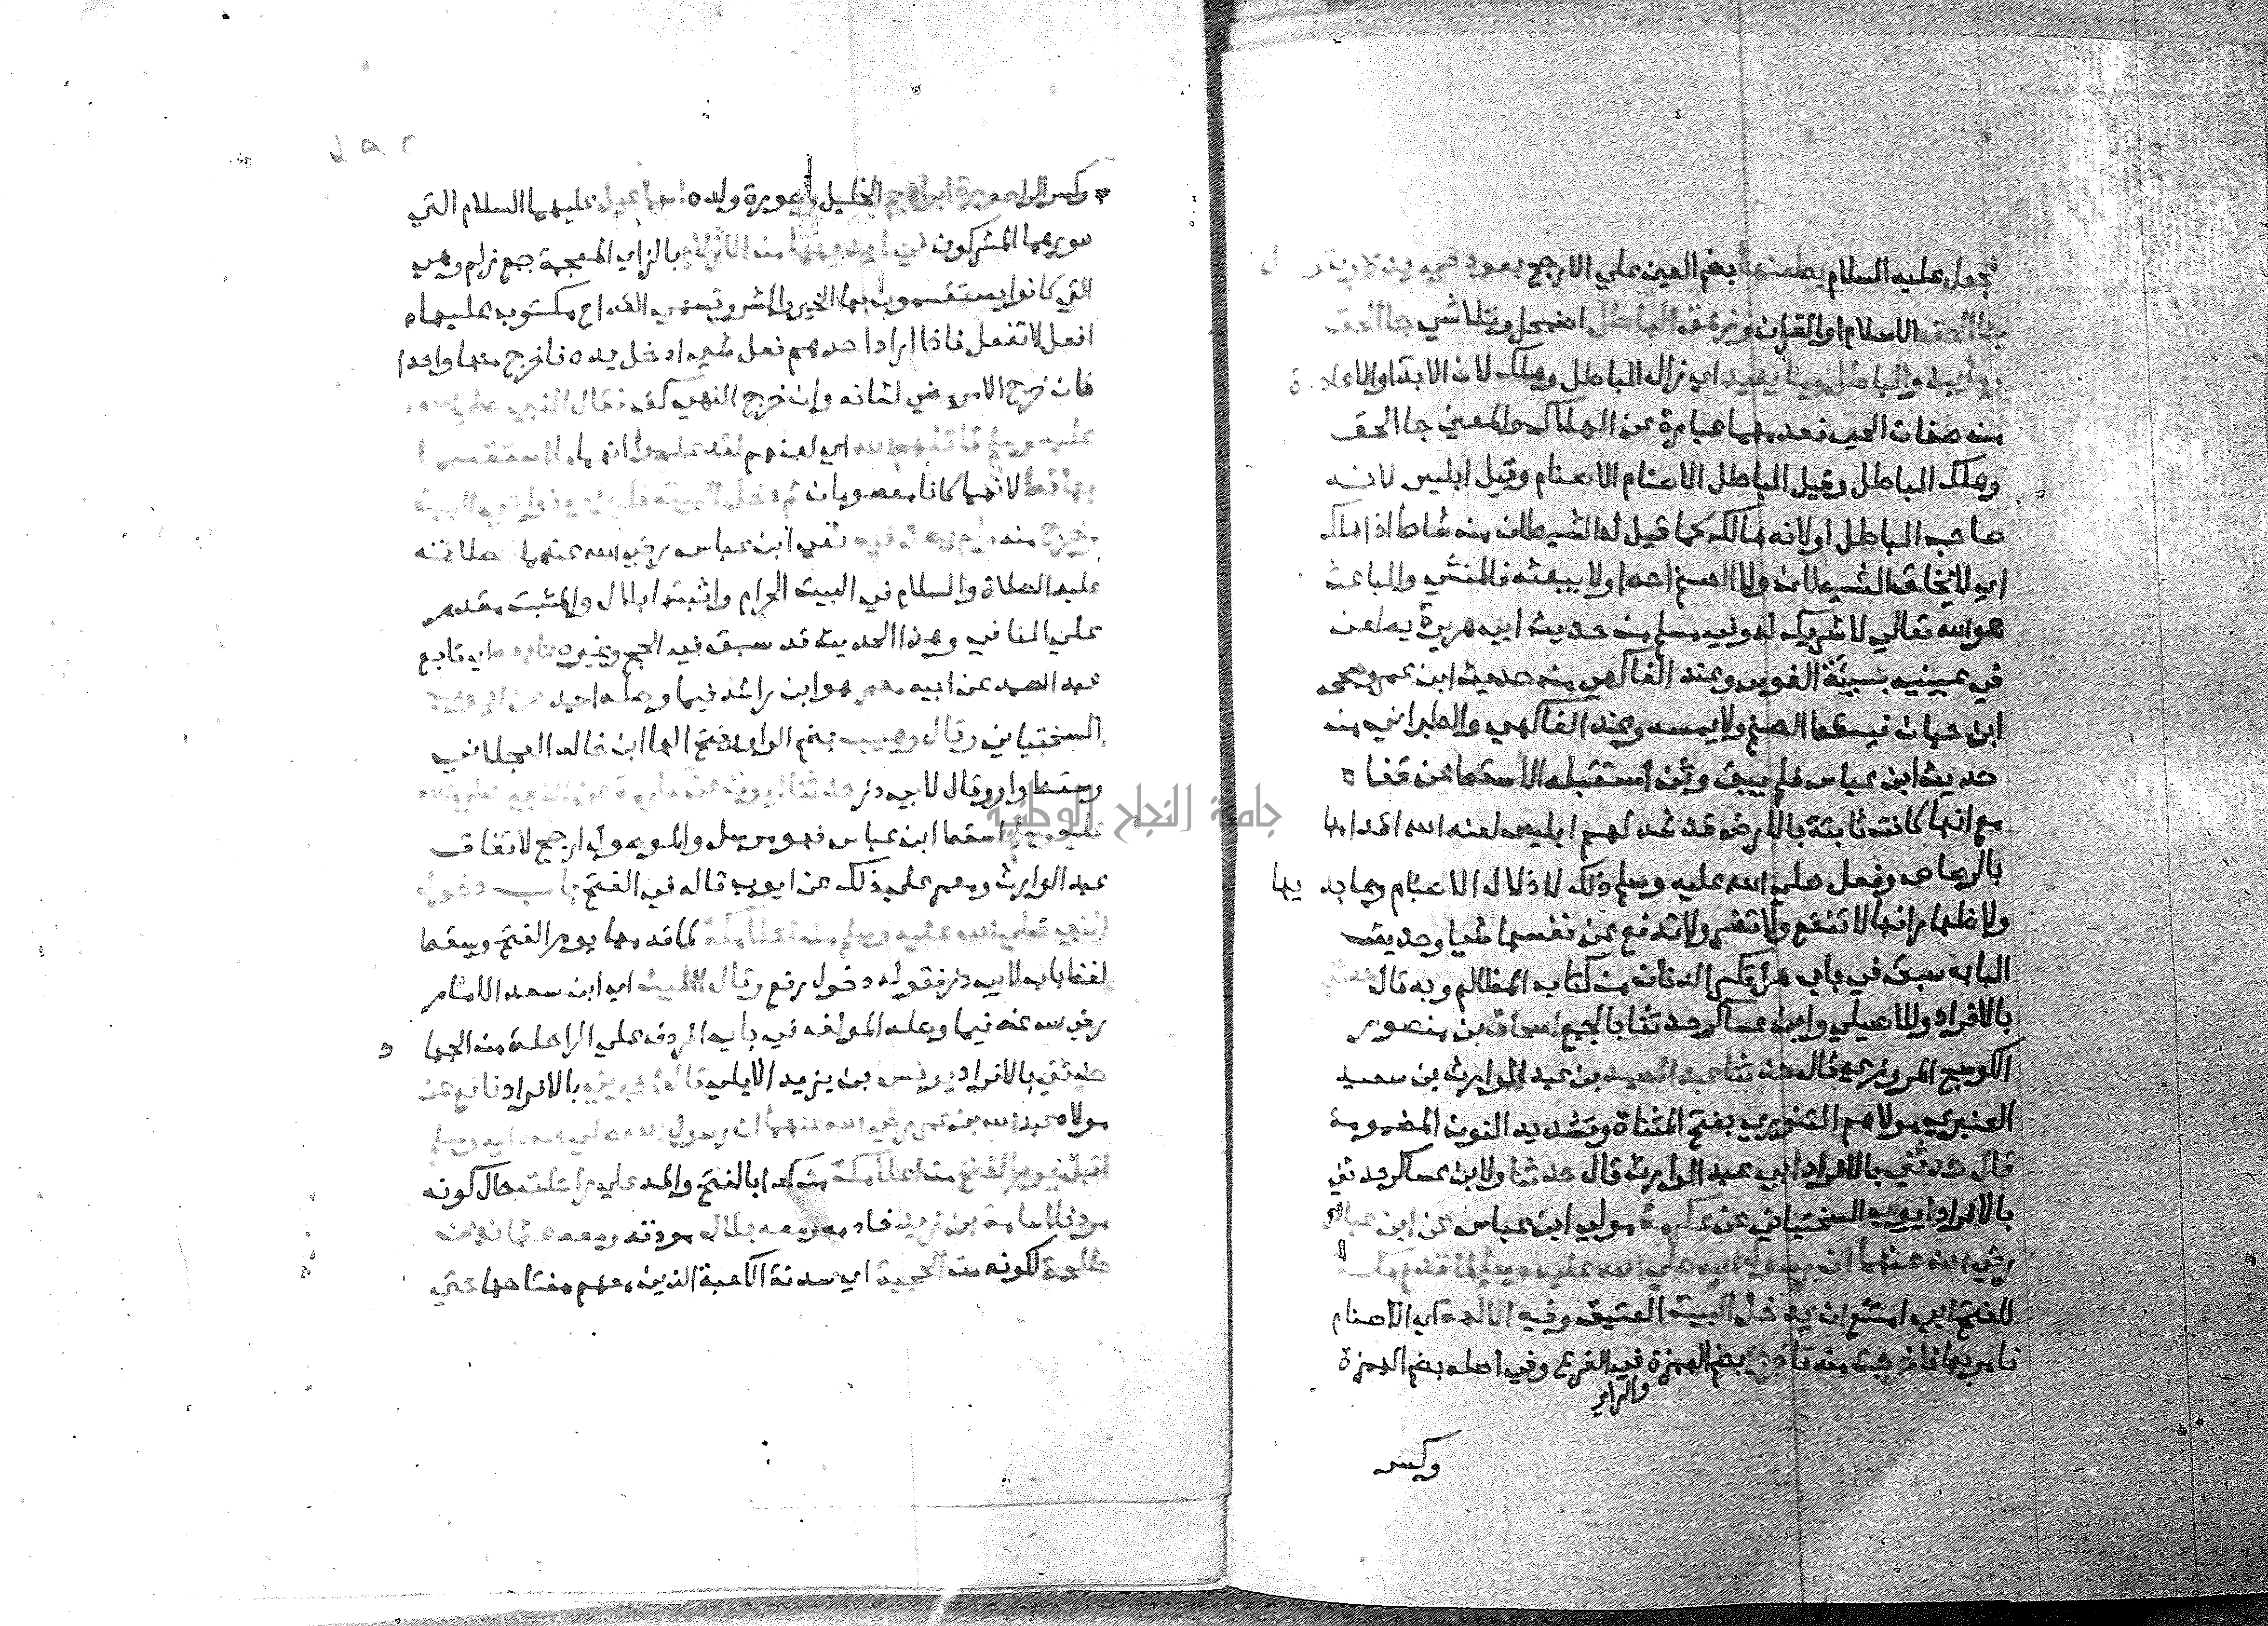 فجعل عليه السلام يطعنها بضم العين علي الارجح بعود في يده ويقول
جا الحق الاسلام او القران وزهق الباطل اضمحل وتلاشي جا الحق
وما يبدي الباطل وما يعيد اي زال الباطل وهلك لان الابدا والاعادة
من صفات الحي فعدمهما عبارة عن الهلاك والمعني جا الحق
وهلك الباطل وقيل الباطل الاصنام الاصنام وقيل ابليس لانه
صاحب الباطل او لانه هالك كما قيل له الشيطان من شاط اذا هلك
اي لا يخلق الشيطان ولا الصنم احدا ولا يبعثه فالمنشي والباعث
هو الله تعالي لا شريك له وفي مسلم من حديث ابي هريرة يطعن
في عينيه بسية القوس وعند الفاكهي من حديث ابن عمر وصححه
ابن حبان فيسقط الصنم ولا يمسه وعند الفاكهي والطبراني من
حديث ابن عباس فلم يبق وثن استقبله الا سقط عن قفاه
مع انها كانت ثابتة بالارض قد شد لهم ابليس لعنه الله اقدامها
بالرصاص وفعل صلي الله عليه وسلم ذلك لاذلال الاصنام وعابديها
ولاظهار انها لا تنفع ولا تضر ولا تدفع عن نفسها شيا وحديث
الباب سبق في باب هل تكسر الدنان من كتاب المظالم وبه قال حدثني
بالافراد وللاصيلي وابن عساكر حدثنا بالجمع اسحاق بن منصور
الكوسج المروزي قال حدثنا عبد الصمد بن عبد الوارث بن سعيد
العنبري مولاهم التنوري بفتح المثناة وتشديد النون المضمومة
قال حدثني بالافراد ابي عبد الوارث قال حدثنا ولابن عساكر حدثني
بالافراد ايوب السختياني عن عكرمة مولي ابن عباس عن ابن عباس
رضي الله عنهما ان رسول الله صلي الله عليه وسلم لما قدم مكة
للفتح ابي امتنع ان يدخل البيت العتيق وفيه الالهة اي الاصنام
فامر بها فاخرجت منه فاخرج بضم الهمزة في الفرع وفي اصله بضم الهمزة
والراي
وكسر
وكسر الرا صورة ابراهيم الخليل وصورة ولده اسماعيل عليهما السلام التي
صورهما المشركون في ايديهما من الازلام بالزاي المعجمة جمع زلم وهي
التي كانوا يستقسمون بها الخير والشر وتسمي القداح مكتوب عليها
افعل لا تفعل فاذا اراد احدهم فعل شي ادخل يده فاخرج منها واحدا
فان خرج الامر مضي لشانه وان خرج النهي كف فقال النبي صلي الله
عليه وسلم قاتلهم الله اي لعنهم لقد علموا انهما ما استقسما
بها قط لانهما كانا معصومان ثم دخل البيت فكبر في نواحي البيت
وخرج منه ولم يصل فيه نفي ابن عباس رضي الله عنهما صلاته
عليه الصلاة والسلام في البيت الحرام واثبتها بلال والمثبت مقدم
علي النافي وهذا الحديث قد سبق في الحج وغيره تابعه اي تابع
عبد الصمد عن ابيه معمر هو ابن راشد فيما وصله احمد عن ايوب
السختياني وقال وهيب بضم الواو وفتح الها ابن خالد العجلاني
وسقط واو وقال لابي ذر حدثنا ايوب عن عكرمة عن النبي صلي الله
عليه وسلم اسقط ابن عباس فهو مرسل والموصول ارجح لاتفاق
عبد الوارث ومعمر علي ذلك عن ايوب قاله في الفتح باب دخول
النبي صلي الله عليه وسلم من اعلا مكة لما قدمها يوم الفتح وسقط
لفظ باب لابي ذر فقوله دخول رفع وقال الليث اي ابن سعد الامام
رضي الله عنه فيما وصله المولف في باب الردف علي الراحلة من الجهاد
حدثني بالافراد يونس بن يزيد الايلي قال اخبرني بالافراد نافع عن
مولاه عبد الله بن عمر رضي الله عنهما ان رسول الله صلي الله عليه وسلم
اقبل يوم الفتح من اعلا مكة من كدا بالفتح والمد علي راحلته حال كونه
مردفا اسامة بن زيد خادمه ومعه بلال موذنه ومعه عثمان بن
طلحة لكونه من الحجبة اي سدنة الكعبة الذين معهم مفتاحها حتي
جامعة النجاح الوطنية